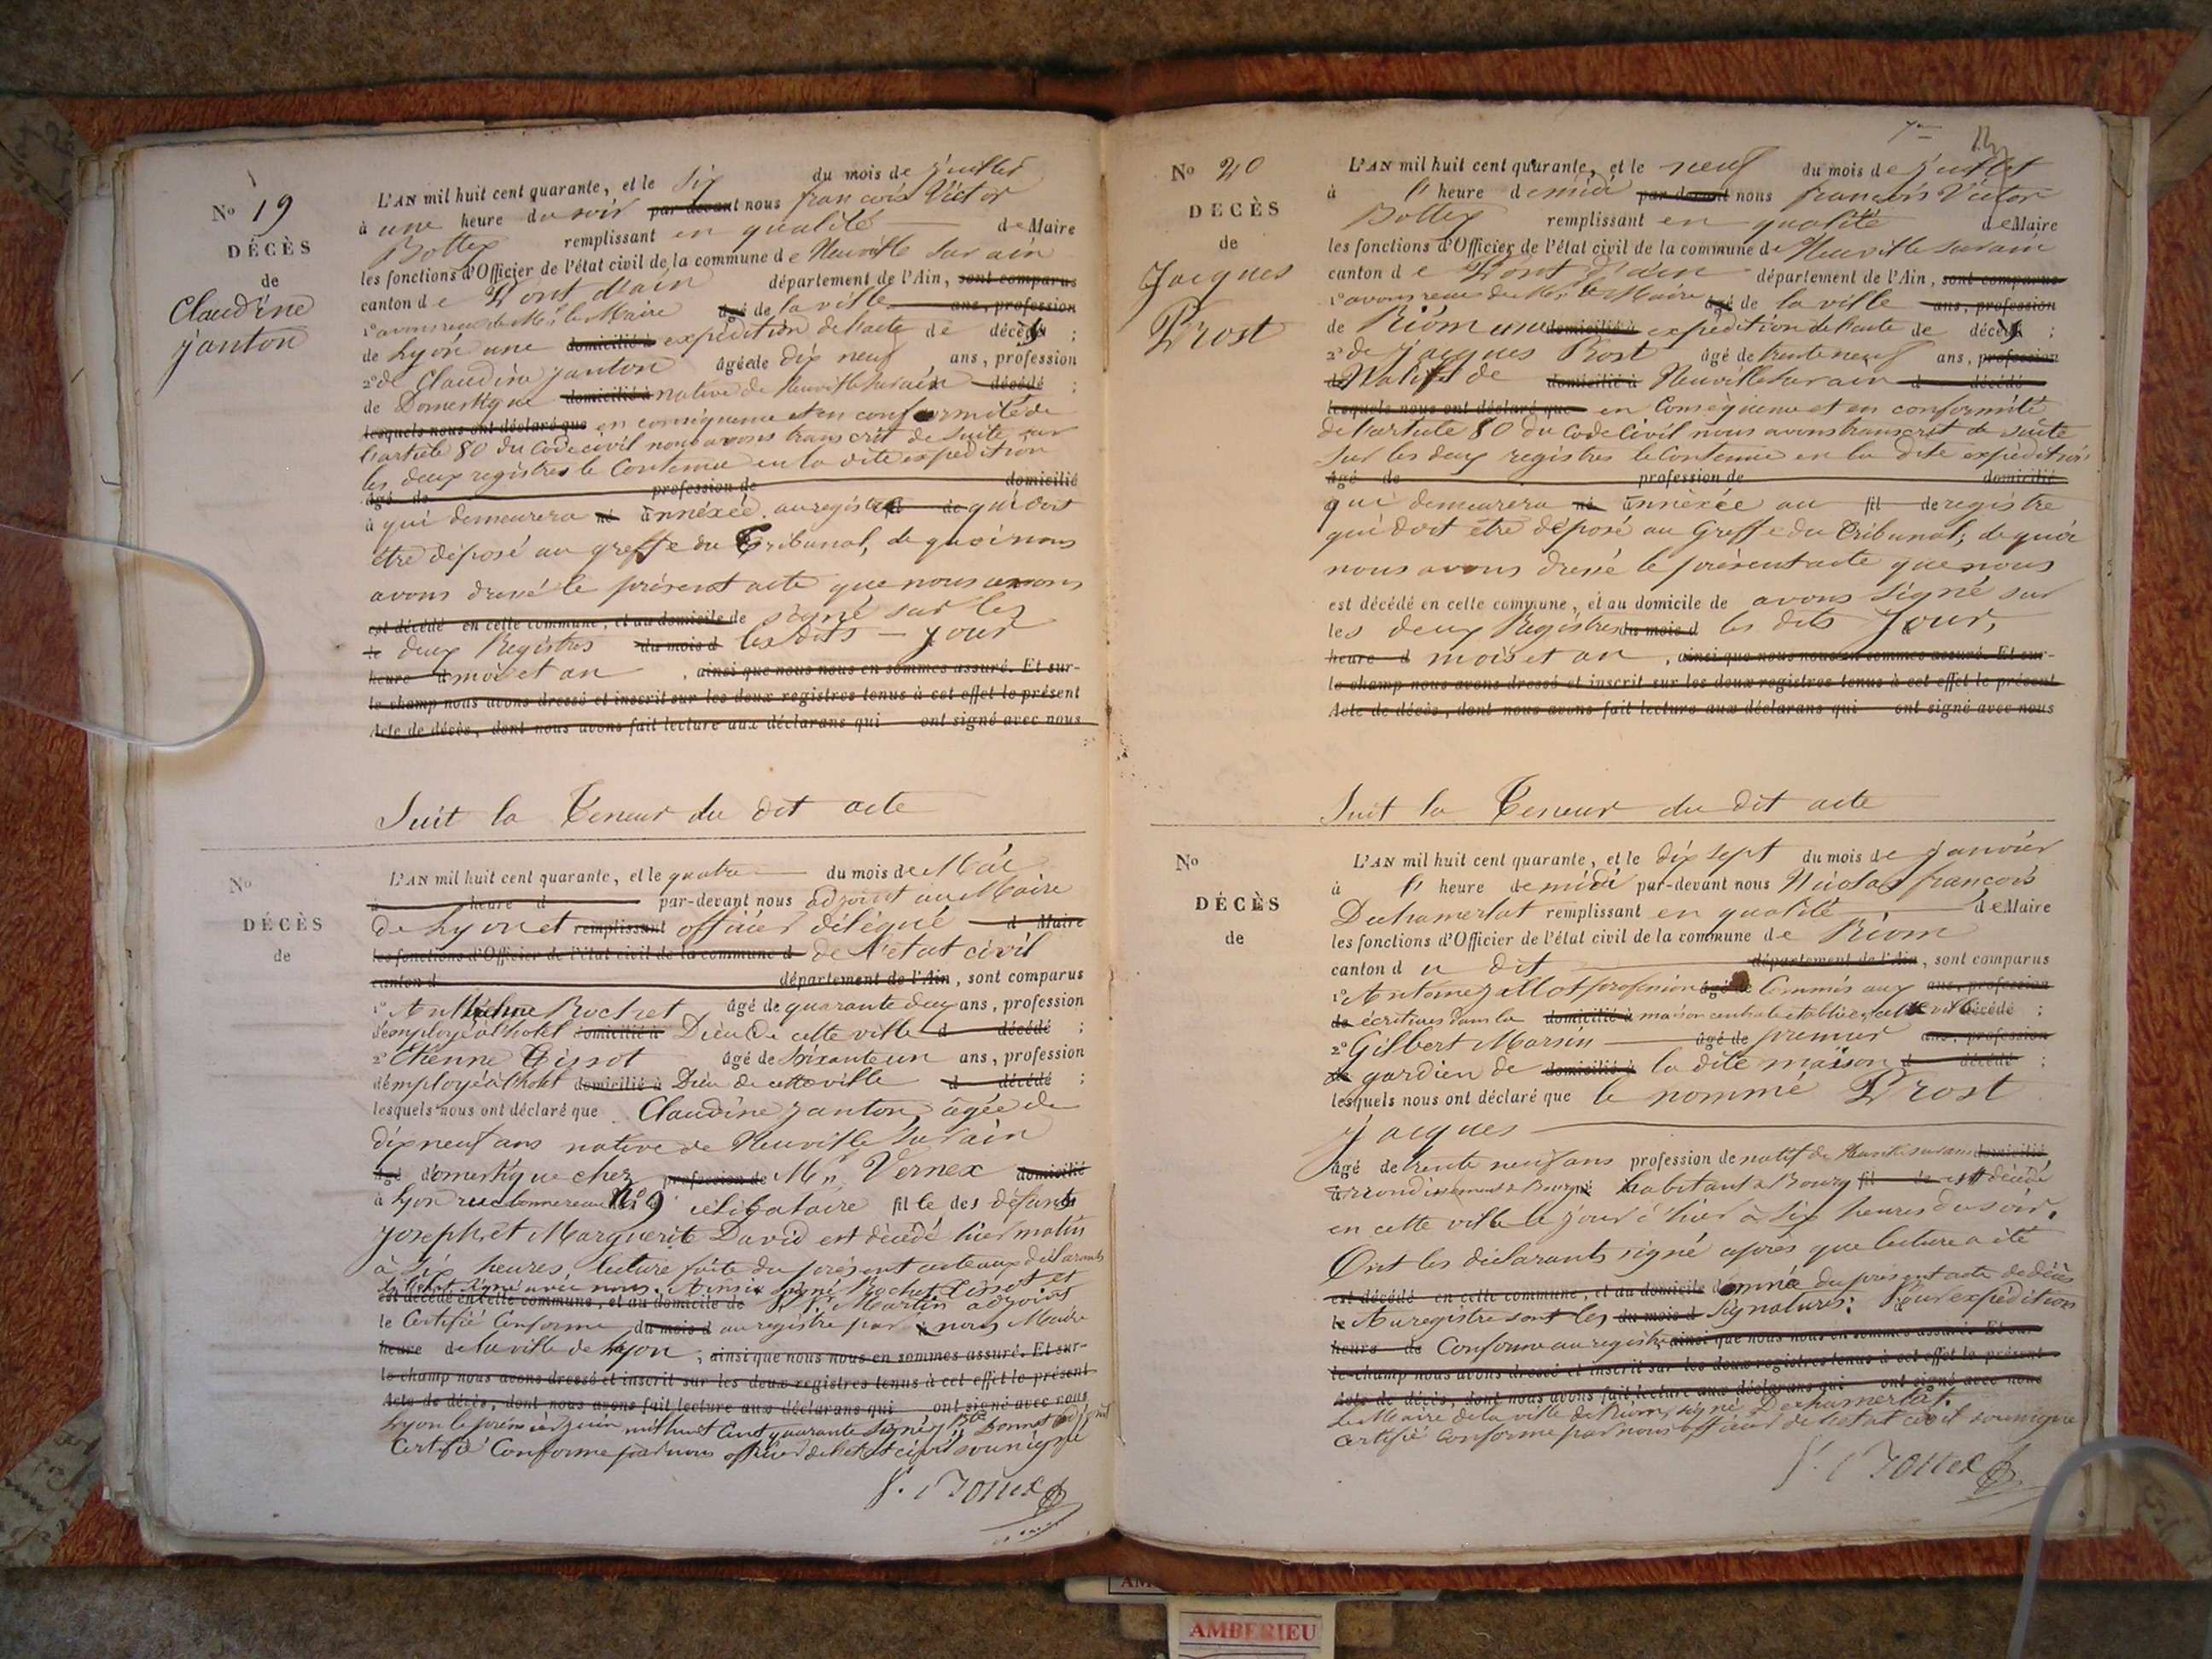 No 19
DÉCÈS
de
Claudine
Janton
L'AN mil huit cent quarante, et le six du mois de juillet
à une heure du soir par devant nous françois Victor
Bottex remplissant en qualité de Maire
les fonctions d'Officier de l'état civil de la commune de Neuville sur ain
canton de Pont d'ain département de l'Ain, sont comparus
1º avons reçu de Mr. le Maire âgé de la ville ans, profession
de Lyon une domicilié à expédition de l'acte de décès ;
2º de Claudine Janton âgée de dix neuf ans, profession
de Domestique domicilié à native de Neuville sur ain décédé ;
lesquels nous ont déclaré que en conséquence et en conformité de
l'article 80 du Code civil nous avons transcrit de suite sur
les deux registres le Contenue en la dite expédition
âgé de profession de domicilié
à qui demeurera né annéxée au registre fil de qui doit
être déposé au greffe du Tribunal, de quoi nous
avons dressé le présent acte que nous avons
est décédé en cette commune, et au domicile de signé sur les
le deux Registres du mois d les dits jour
heure d mois et an , ainsi que nous nous en sommes assuré. Et sur-
le champ nous avons dressé et inscrit sur les deux registres tenus à cet effet le présent
Acte de décès, dont nous avons fait lecture aux déclarans qui ont signé avec nous
Suit la Teneur du dit acte
No
DÉCÈS
de
L'AN mil huit cent quarante, et le quatre du mois de Mai
à heure d par-devant nous adjoint au Maire
de Lyon et remplissant officier délégué d Maire
les fonctions d'Officier de l'état civil de la commune d de l'état civil
canton d département de l'Ain, sont comparus
1º Anthelme Rochet âgé de quarante deux ans, profession
d'employé à l'hotel domicilié à Dieu de cette ville d décédé ;
2º Etienne Tissot âgé de soixante un ans, profession
d'employé à l'hotel domicilié à Dieu de cette ville d décédé ;
lesquels nous ont déclaré que Claudine Janton, âgée de
dix neuf ans native de Neuville sur ain
âgé domestique chez profession de Mr. Vernex domicilié
à Lyon rue No 9 célibataire fille des défunts
Joseph et Marguerite David est décédé hier matin
à six heures, lecture faite du présent acte aux déclarants
ils l'ont signé avec nous. Ainsi signé Rochet Tissot et
est décédé en cette commune, et au domicile de Martin adjoint
le Certifié Conforme du mois d au registre par à nous Maire
heure de la ville de Lyon , ainsi que nous nous en sommes assuré. Et sur-
le champ nous avons dressé et inscrit sur les deux registres tenus à cet effet le présent
Acte de décès, dont nous avons fait lecture aux déclarans qui ont signé avec nous
Lyon le premier Juin mil huit Cent quarante signé Bonnet adjoint
Certifié Conforme par nous officier de l'état civil soussigné
f. Bottex
12
No 20
DÉCÈS
de
Jacques
Prost
L'AN mil huit cent quarante, et le neuf du mois de juillet
à l' heure de midi par devant nous françois Victor
Bottex remplissant en qualité de Maire
les fonctions d'Officier de l'état civil de la commune de Neuville sur ain
canton de Pont d'ain département de l'Ain, sont comparus
1º avons reçu de Mr. le Maire âgé de la ville ans, profession
de Riom une domicilié à expédition de l'acte de décès ;
2º de Jacques Prost âgé de trente neuf ans, profession
de Natif de domicilié à Neuville sur ain d décédé
lesquels nous ont déclaré que en Conséquence et en conformité
de l'article 80 du Code Civil nous avons transcrit de suite
sur les deux registres le Contenue en la dite expédition
âgé de profession de domicilié
qui demeurera né annexée au fil de registre
qui doit être déposé au Greffe du Tribunal; de quoi
nous avons dressé le présent acte que nous
est décédé en cette commune, et au domicile de avons signé sur
les deux Registres du mois d les dits Jour,
heure d mois et an , ainsi que nous nous en sommes assuré. Et sur-
le champ nous avons dressé et inscrit sur les deux registres tenus à cet effet le présent
Acte de décès, dont nous avons fait lecture aux déclarans qui ont signé avec nous
Suit la Teneur du dit acte
No
DÉCÈS
de
L'AN mil huit cent quarante, et le dix sept du mois de janvier
à l' heure de midi par-devant nous Nicolas françois
Dechamerlat remplissant en qualité de Maire
les fonctions d'Officier de l'état civil de la commune de Riom
canton du dit département de l'Ain, sont comparus
1º Antoine profession âgé de Commis aux ans, profession
de écritures dans la domicilié à maison centrale établie en cette ville décédé ;
2º Gilbert Marsin âgé de premier ans, profession
de gardien de domicilié à la dite maison d décédé ;
lesquels nous ont déclaré que le nommé Prost
Jacques
âgé de trente neuf ans profession de natif de Neuville sur ain domicilié
arrondissement de Bourg né habitant à Bourg fil de est décédé
en cette ville le jour d'hier à six heures du soir.
Ont les déclarants signé après que lecture a été
est décédé en cette commune, et au domicile donnée du présent acte de décès
le Au registre sont les du mois d signatures: Pour expédition
heure de Conforme au registre ainsi que nous nous en sommes assuré. Et sur-
le champ nous avons dressé et inscrit sur les deux registres tenus à cet effet le présent
Acte de décès, dont nous avons fait lecture aux déclarans qui ont signé avec nous
Le Maire de la ville de Riom, signé Dechamerlat.
Certifié Conforme par nous officier de l'état civil soussigné
f. Bottex
AMBERIEU